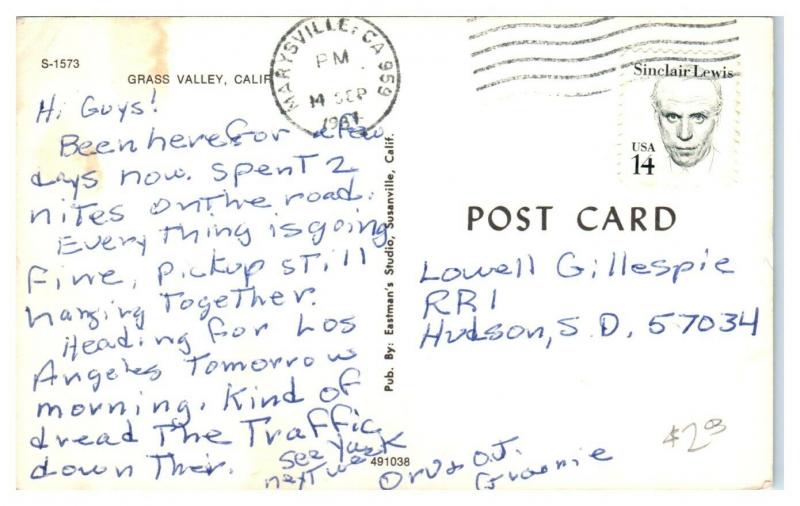 S-1573
GRASS VALLEY, CALIF
Hi Guys!
Been here for a few
days now. spent 2
nites on the road.
Every thing is going
Fine, pickup still
hanging Together.
Heading for Los
Angeles Tomorrow
morning. Kind of
dread The Traffic
down Ther.
see ya
next week
491038
Pub. By: Eastman's Studio, Susanville, Calif.
MARYSVILLE, CA 959
PM
14 SEP
Sinclair Lewis
USA
14
POST CARD
Lowell Gillespie
RR1
Hudson, S.D. 57034
$2.00